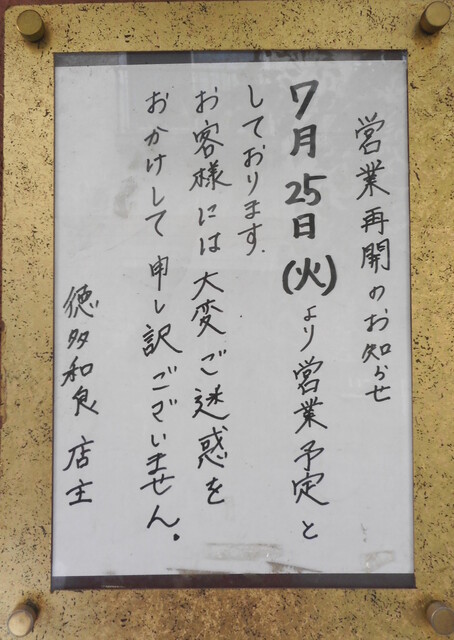 営業再開のお知らせ
7月25日(火)より営業予定と
しております.
お客様には大変ご迷惑を
おかけして申し訳ございません。
徳多和良 店主